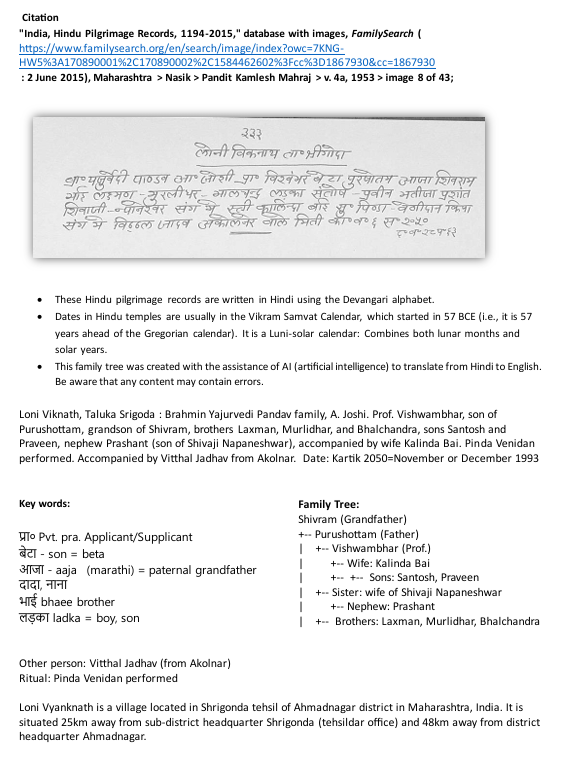 Citation
"India, Hindu Pilgrimage Records, 1194-2015," database with images, FamilySearch (
https://www.familysearch.org/en/search/image/index?owc=7KNG-
HW5%3A170890001%2C170890002%2C1584462602%3Fcc%3D1867930&cc=1867930
: 2 June 2015), Maharashtra > Nasik > Pandit Kamlesh Mahraj > v. 4a, 1953 > image 8 of 43;
२३२
लोनी विकनाथ ता० श्रीगोंदा
यजुर्वेदी पाण्डव आ० जोशी प्रा० विश्वंभर बेटा पुरषोतम आजा शिवराम
भाई लक्ष्मण - मुरलीधर - भालचन्द्र लड़का संतोष - प्रवीन भतीजा प्रशांत
शिवाजी संग मे स्त्री कालिन्दा बाई पिण्डा वेणीदान किया
संग मे विठ्ठल जादव अकोलनेर वाले मिती का० व० ६ स० २०५०
• These Hindu pilgrimage records are written in Hindi using the Devangari alphabet.
• Dates in Hindu temples are usually in the Vikram Samvat Calendar, which started in 57 BCE (i.e., it is 57
years ahead of the Gregorian calendar). It is a Luni-solar calendar: Combines both lunar months and
solar years.
• This family tree was created with the assistance of AI (artificial intelligence) to translate from Hindi to English.
Be aware that any content may contain errors.
Loni Viknath, Taluka Srigoda : Brahmin Yajurvedi Pandav family, A. Joshi. Prof. Vishwambhar, son of
Purushottam, grandson of Shivram, brothers Laxman, Murlidhar, and Bhalchandra, sons Santosh and
Praveen, nephew Prashant (son of Shivaji Napaneshwar), accompanied by wife Kalinda Bai. Pinda Venidan
performed. Accompanied by Vitthal Jadhav from Akolnar. Date: Kartik 2050=November or December 1993
Key words:
प्रा० Pvt. pra. Applicant/Supplicant
बेटा - son = beta
आजा - aaja (marathi) = paternal grandfather
दादा, नाना
भाई bhaee brother
लड़का ladka = boy, son
Family Tree:
Shivram (Grandfather)
+-- Purushottam (Father)
| +-- Vishwambhar (Prof.)
| +-- Wife: Kalinda Bai
| +-- +-- Sons: Santosh, Praveen
| +-- Sister: wife of Shivaji Napaneshwar
| +-- Nephew: Prashant
| +-- Brothers: Laxman, Murlidhar, Bhalchandra
Other person: Vitthal Jadhav (from Akolnar)
Ritual: Pinda Venidan performed
Loni Vyanknath is a village located in Shrigonda tehsil of Ahmadnagar district in Maharashtra, India. It is
situated 25km away from sub-district headquarter Shrigonda (tehsildar office) and 48km away from district
headquarter Ahmadnagar.